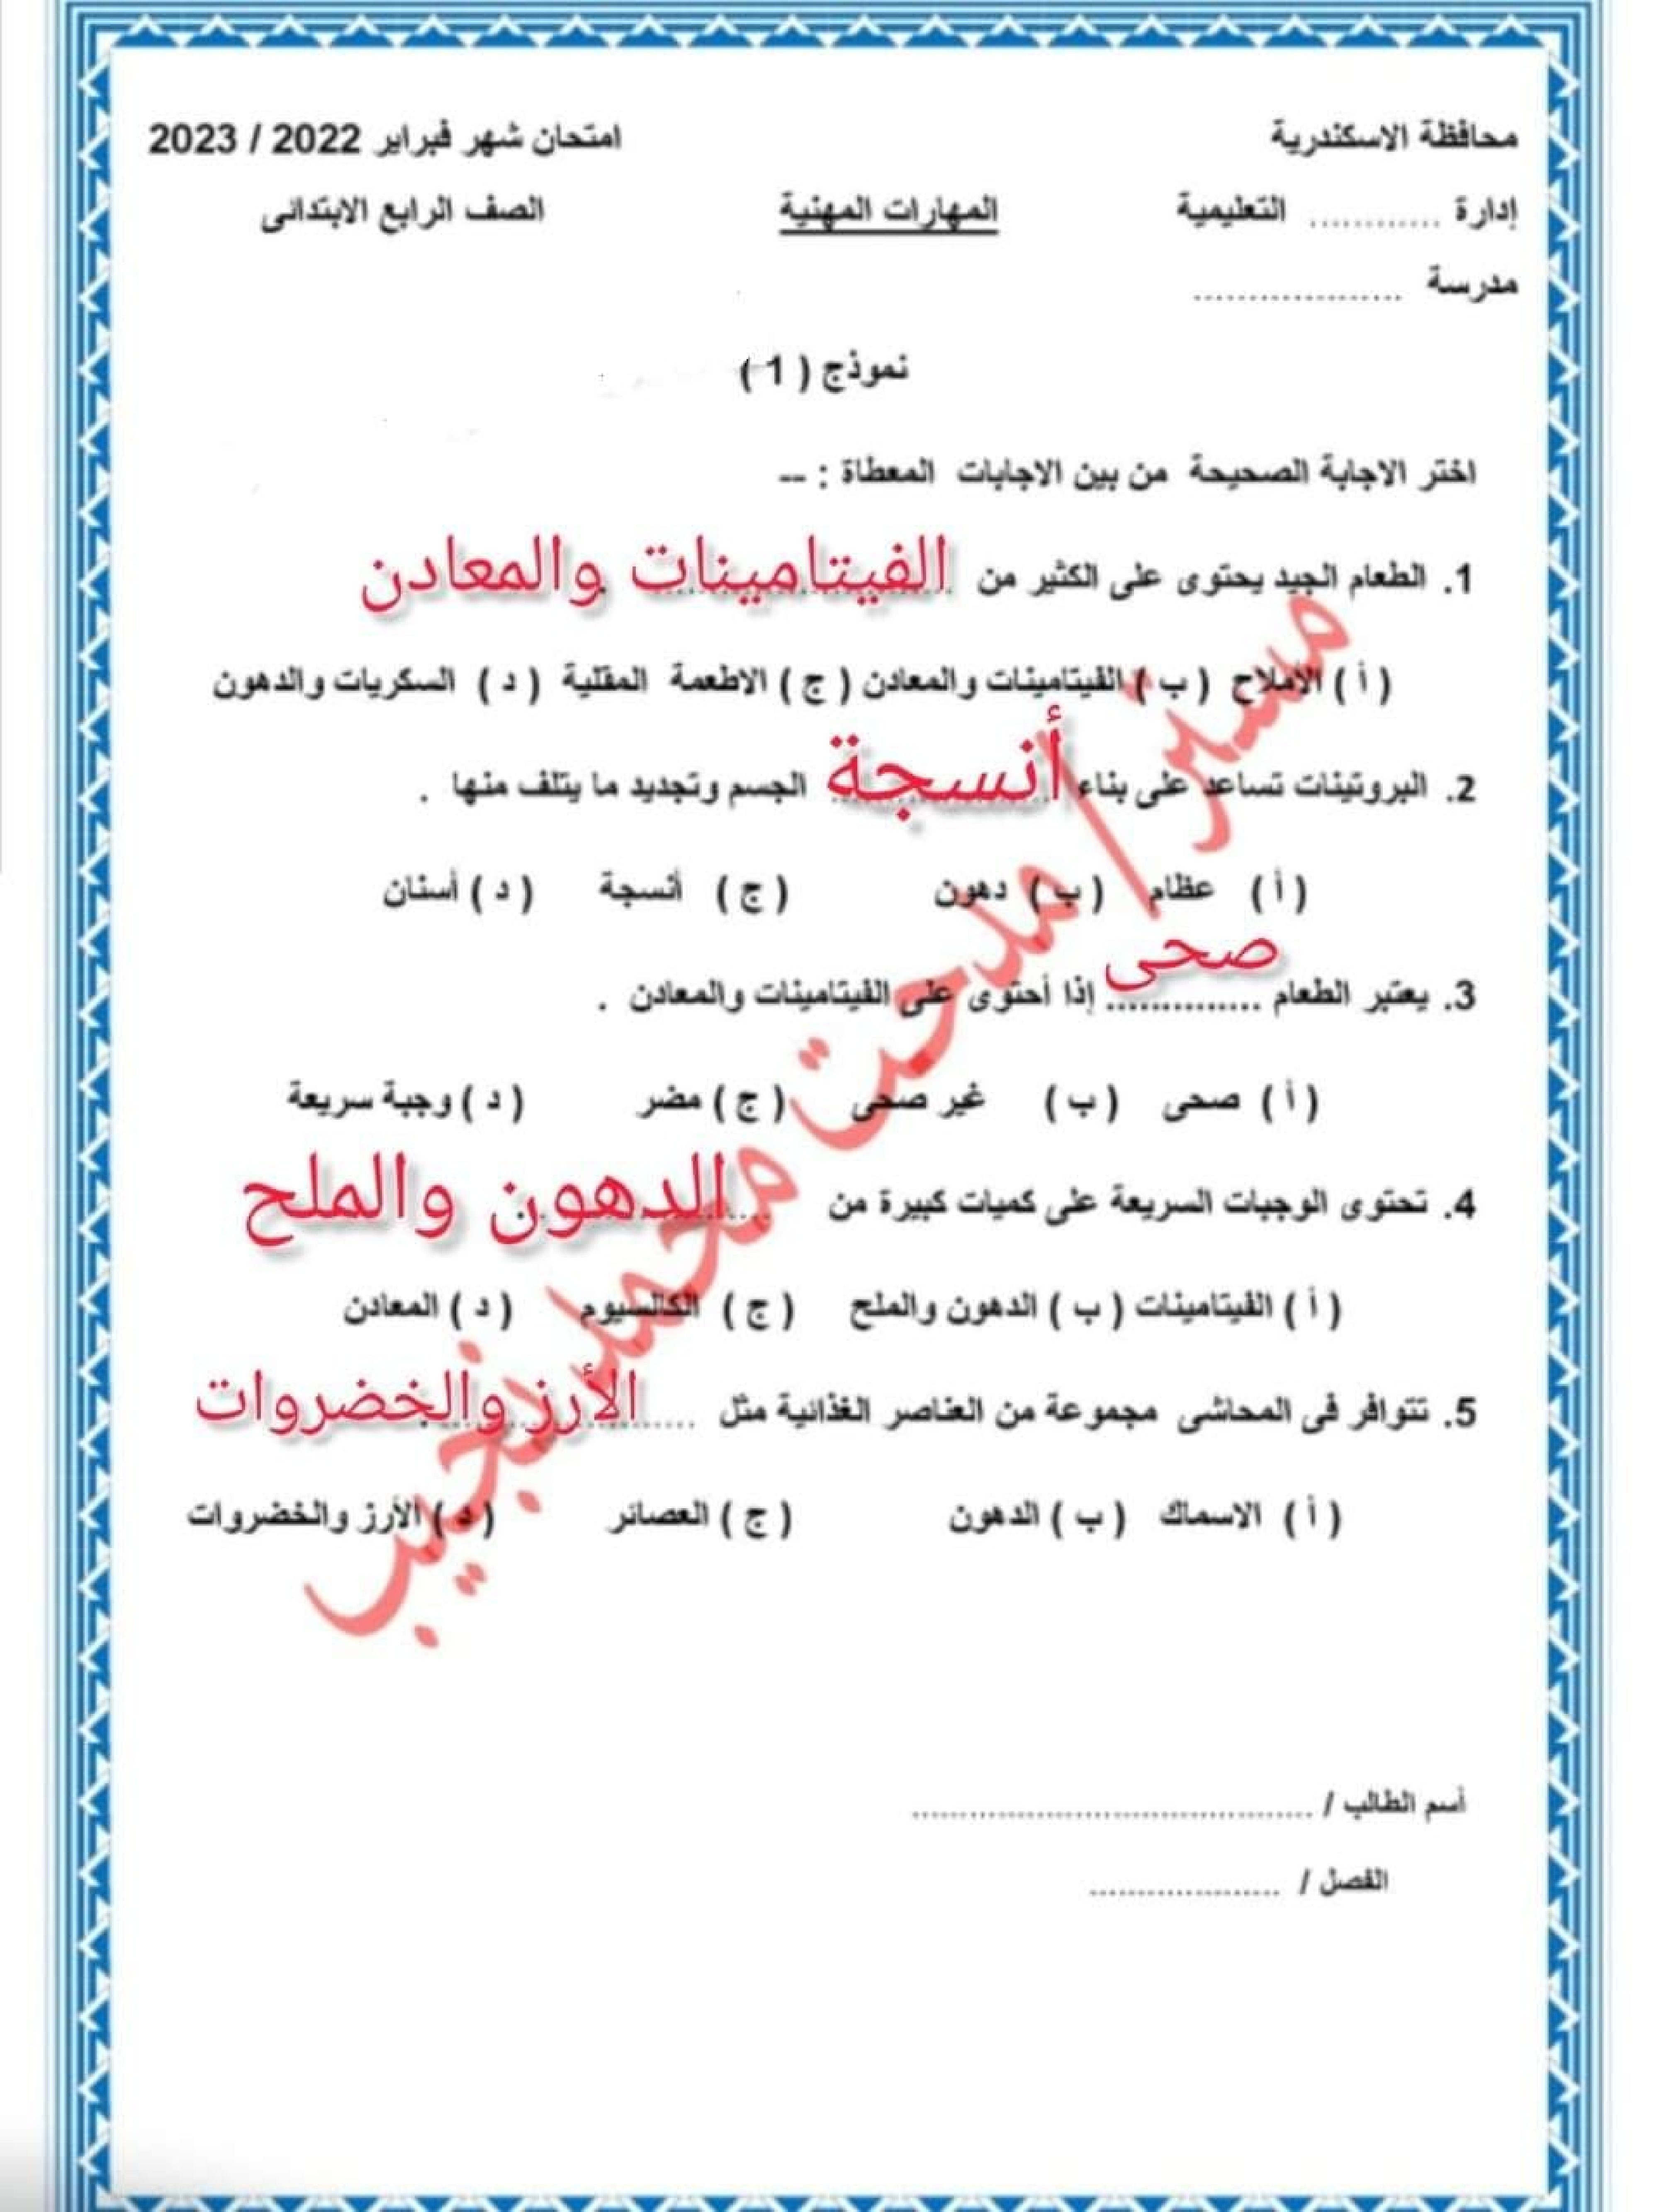 محافظة الاسكندرية امتحان شهر فبراير 2022 / 2023
إدارة ............ التعليمية المهارات المهنية الصف الرابع الابتدائى
مدرسة ....................
نموذج ( 1 )
اختر الاجابة الصحيحة من بين الاجابات المعطاة : --
1. الطعام الجيد يحتوى على الكثير من الفيتامينات والمعادن
( أ ) الأملاح ( ب ) الفيتامينات والمعادن ( ج ) الاطعمة المقلية ( د ) السكريات والدهون
2. البروتينات تساعد على بناء أنسجة الجسم وتجديد ما يتلف منها .
( أ ) عظام ( ب ) دهون ( ج ) أنسجة ( د ) أسنان
3. يعتبر الطعام .............. صحى إذا أحتوى على الفيتامينات والمعادن .
( أ ) صحى ( ب ) غير صحى ( ج ) مضر ( د ) وجبة سريعة
4. تحتوى الوجبات السريعة على كميات كبيرة من الدهون والملح
( أ ) الفيتامينات ( ب ) الدهون والملح ( ج ) الكالسيوم ( د ) المعادن
5. تتوافر فى المحاشى مجموعة من العناصر الغذائية مثل الأرز والخضروات
( أ ) الاسماك ( ب ) الدهون ( ج ) العصائر ( د ) الأرز والخضروات
مستر / مدحت محمد نجيب
أسم الطالب / ........................................
الفصل / ....................